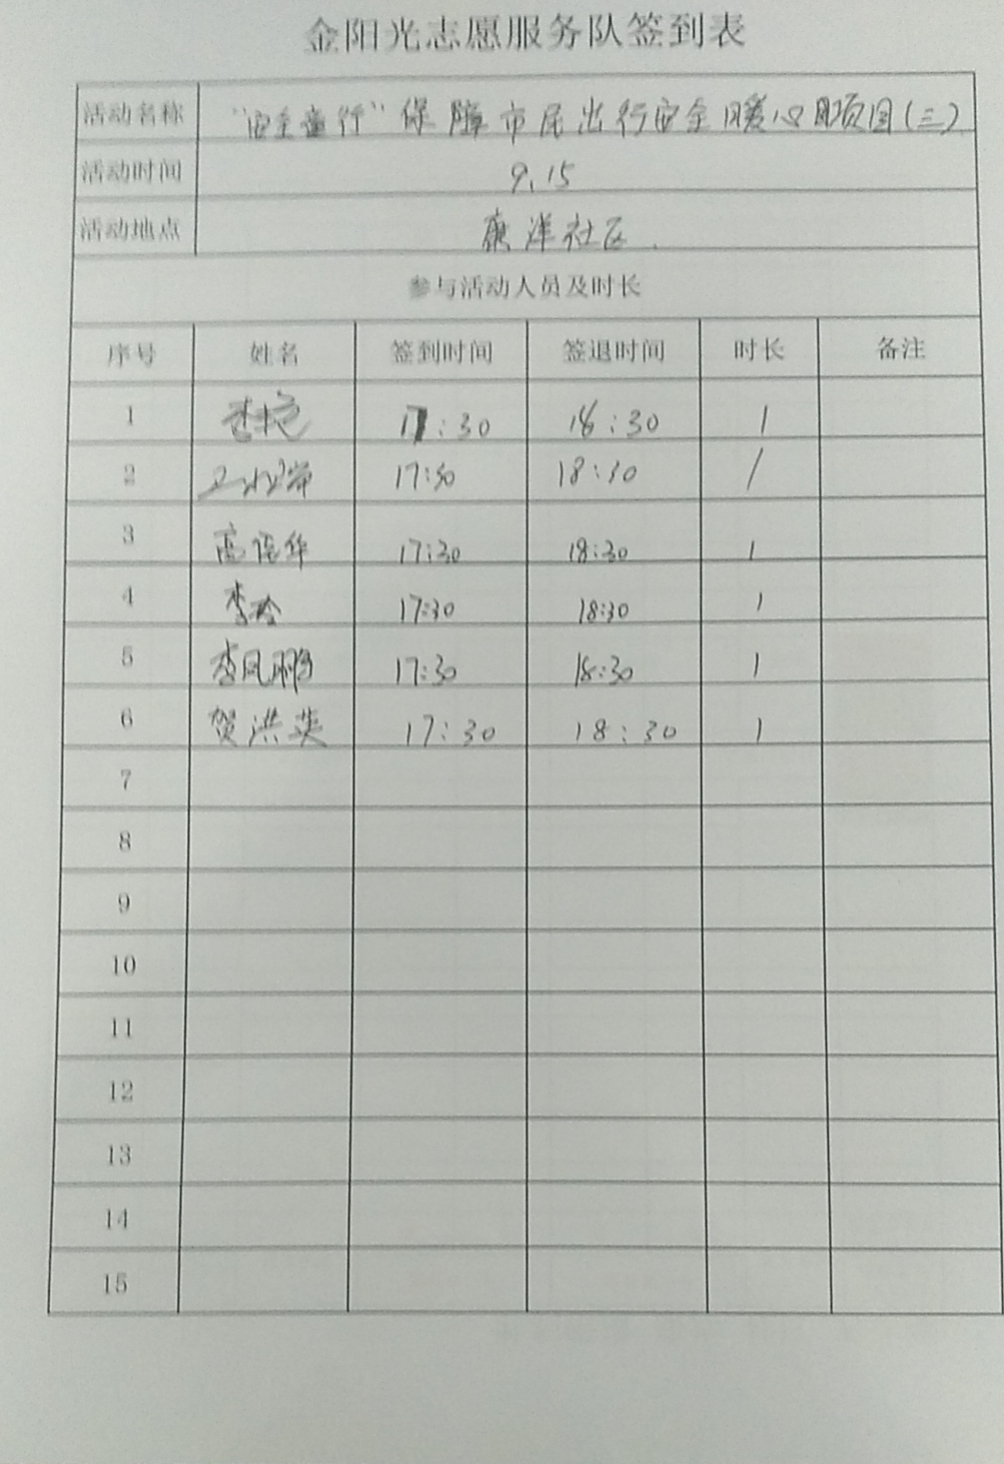 金阳光志愿服务队签到表
活动名称 "安全童行"保障市民出行安全暖心项目(三)
活动时间 9.15
活动地点 康洋社区
参与活动人员及时长
序号 姓名 签到时间 签退时间 时长 备注
1 李艳 17:30 18:30 1
2 17:30 18:30 1
3 17:30 18:30 1
4 李玲 17:30 18:30 1
5 李凤鹏 17:30 18:30 1
6 贺洪英 17:30 18:30 1
7
8
9
10
11
12
13
14
15